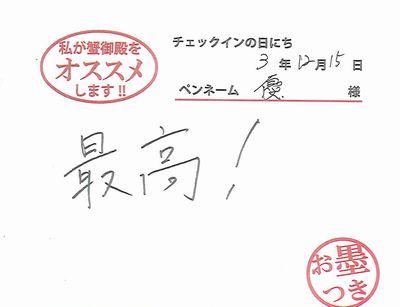 私が蟹御殿を
オススメ
します!!
チェックインの日にち
3年12月15日
ペンネーム 優 様
最高!
お墨
つき